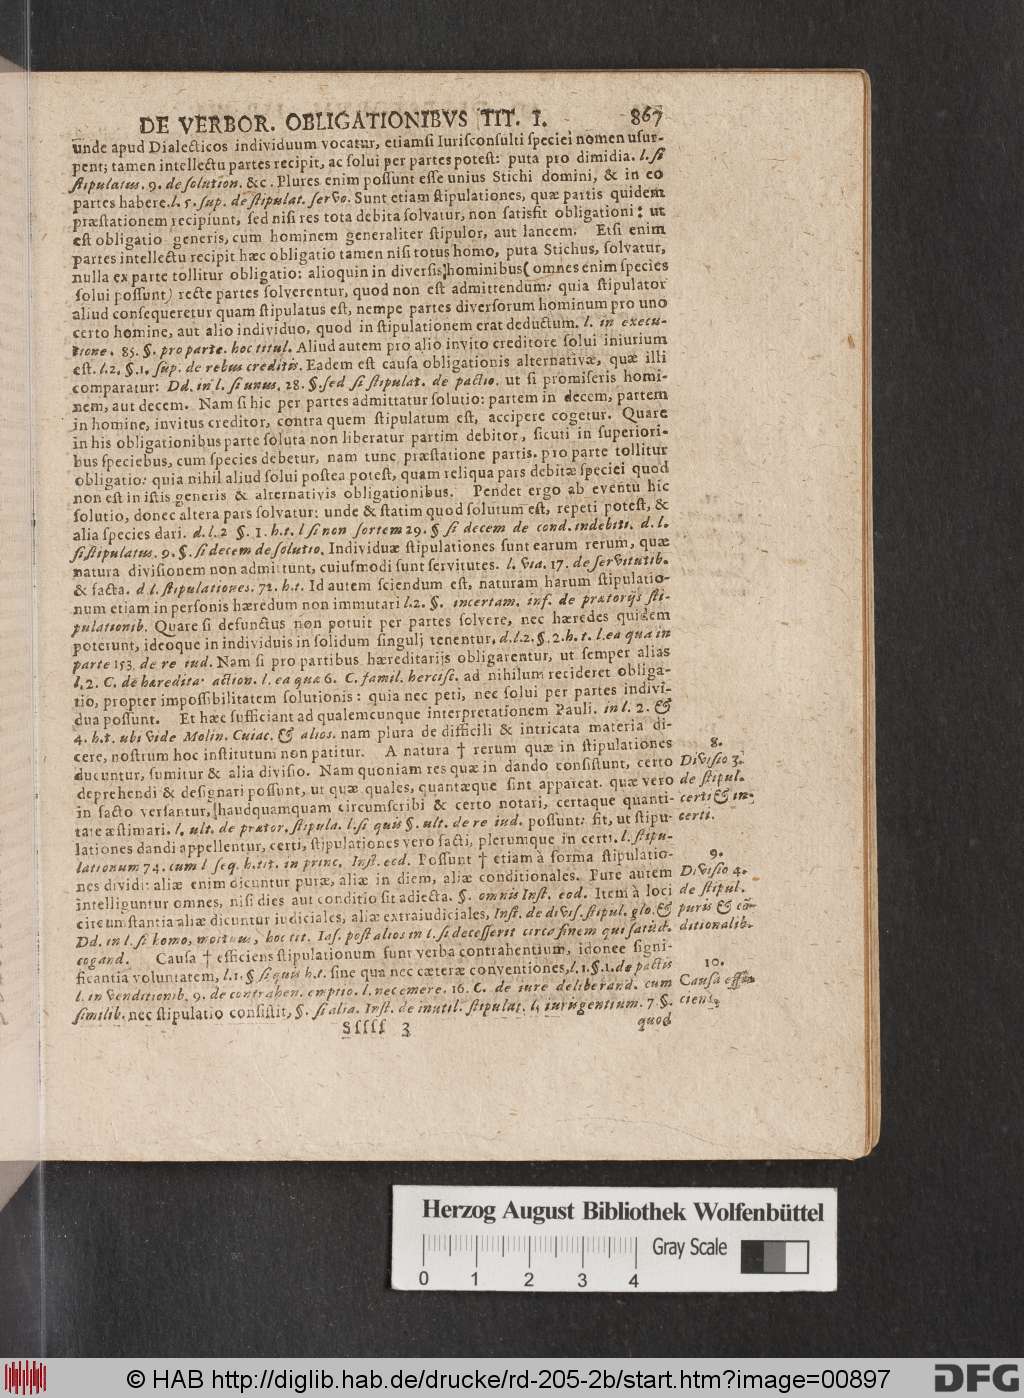 DE VERBOR. OBLIGATIONIBVS TIT. I. 867
unde apud Dialecticos individuum vocatur, etiamsi Iurisconsulti speciei nomen usur-
pent; tamen intellectu partes recipit, ac solui per partes potest: puta pro dimidia. l. si
stipulatus. 9. de solution. &c. Plures enim possunt esse unius Stichi domini, & in eo
partes habere. l. 5. sup. de stipulat. servo. Sunt etiam stipulationes, quæ partis quidem
præstationem recipiunt, sed nisi res tota debita solvatur, non satisfit obligationi: ut
est obligatio generis, cum hominem generaliter stipulor, aut lancem. Etsi enim
partes intellectu recipit hæc obligatio tamen nisi totus homo, puta Stichus, solvatur,
nulla ex parte tollitur obligatio: alioquin in diversis hominibus (omnes enim species
solui possunt) recte partes solverentur, quod non est admittendum: quia stipulator
aliud consequeretur quam stipulatus est, nempe partes diversorum hominum pro uno
certo homine, aut alio individuo, quod in stipulationem erat deductum. l. in execu-
tione. 85. §. pro parte. hoc titul. Aliud autem pro alio invito creditore solui iniurium
est. l. 2. §. 1. sup. de rebus creditis. Eadem est causa obligationis alternativæ, quæ illi
comparatur: Dd. in l. si unus. 28. §. sed si stipulat. de pactio. ut si promiseris homi-
nem, aut decem. Nam si hic per partes admittatur solutio: partem in decem, partem
in homine, invitus creditor, contra quem stipulatum est, accipere cogetur. Quare
in his obligationibus parte soluta non liberatur partim debitor, sicuti in superiori-
bus speciebus, cum species debetur, nam tunc præstatione partis. pro parte tollitur
obligatio: quia nihil aliud solui postea potest, quam reliqua pars debitæ speciei quod
non est in istis generis & alternativis obligationibus. Pendet ergo ab eventu hic
solutio, donec altera pars solvatur: unde & statim quod solutum est, repeti potest, &
alia species dari. d. l. 2 §. 1. h. t. l si non sortem 29. § si decem de cond. indebiti. d. l.
si stipulatus. 9. §. si decem de solutio. Individuæ stipulationes sunt earum rerum, quæ
natura divisionem non admittunt, cuiusmodi sunt servitutes. l. via. 17. de servitutib.
& facta. d l. stipulationes. 72. h. t. Id autem sciendum est, naturam harum stipulatio-
num etiam in personis hæredum non immutari l. 2. §. incertam. inf. de prætorijs sti-
pulationib. Quare si defunctus non potuit per partes solvere, nec hæredes quidem
poterunt, ideoque in individuis in solidum singulj tenentur. d. l. 2. §. 2. h. t. l. ea qua in
parte 153. de re iud. Nam si pro partibus hæreditarijs obligarentur, ut semper alias
l. 2. C. de hæredita. action. l. ea quæ 6. C. famil. hercisc. ad nihilum recideret obliga-
tio, propter impossibilitatem solutionis: quia nec peti, nec solui per partes indivi-
dua possunt. Et hæc sufficiant ad qualemcunque interpretationem Pauli. in l. 2. &
4. h. t. ubi vide Molin. Cuiac. & alios. nam plura de difficili & intricata materia di-
cere, nostrum hoc institutum non patitur. A natura † rerum quæ in stipulationes
ducuntur, sumitur & alia divisio. Nam quoniam res quæ in dando consistunt, certo
deprehendi & designari possunt, ut quæ quales, quantæque sint appareat. quæ vero
in facto versantur, haudquamquam circumscribi & certo notari, certaque quanti-
tate æstimari. l. ult. de prætor. stipula. l. si quis §. ult. de re iud. possunt: fit, ut stipu-
lationes dandi appellentur, certi, stipulationes vero facti, plerumque in certi. l. stipu-
lationum 74. cum l seq. h. tit. in princ. Inst. eod. Possunt † etiam à forma stipulatio-
nes dividi: aliæ enim dicuntur puræ, aliæ in diem, aliæ conditionales. Pure autem
intelliguntur omnes, nisi dies aut conditio sit adiecta. §. omnis Inst. eod. Item à loci
circumstantia aliæ dicuntur iudiciales, aliæ extraiudiciales, Inst. de divis. stipul. glo. &
Dd. in l. si homo, mortuus, hoc tit. Ias. post alios in l. si decesserit circa finem qui satisd.
cogand. Causa † efficiens stipulationum sunt verba contrahentium, idonee signi-
ficantia voluntatem, l. 1. § si quis h. t. sine qua nec cæteræ conventiones, l. 1. §. 1. de pactis
l. in venditionib. 9. de contrahen. emptio. l. nec emere. 16. C. de iure deliberand. cum
similib. nec stipulatio consistit, §. si alia. Inst. de inutil. stipulat. l. iurisgentium. 7 §.
Sffff 3 quod
8.
Divisio 3.
de stipul.
certi & in-
certi.
9.
Divisio 4.
de stipul.
puris & cō-
ditionalib.
10.
Causa effi-
ciens
Herzog August Bibliothek Wolfenbüttel
Gray Scale
0 1 2 3 4
© HAB http://diglib.hab.de/drucke/rd-205-2b/start.htm?image=00897
DFG